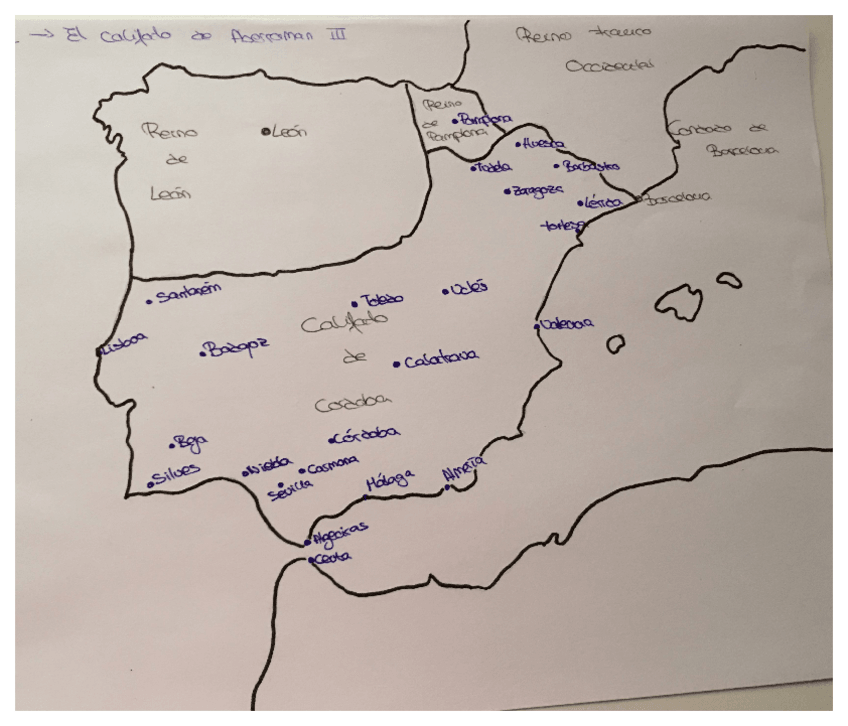 → El Califato de Aberraman III
Reino franco
Occidental
Reino
de
León
León
Reino
de
Pamplona
Pamplona
Condado de
Barcelona
Huesca
Tudela
Barbastro
Zaragoza
Lérida
Barcelona
tortosa
Santarém
Toledo
Uclés
Califato
de
Cordoba
Valencia
Lisboa
Badajoz
Calatrava
Beja
Córdoba
Silves
Niebla
Carmona
Sevilla
Málaga
Almería
Algeciras
Ceuta